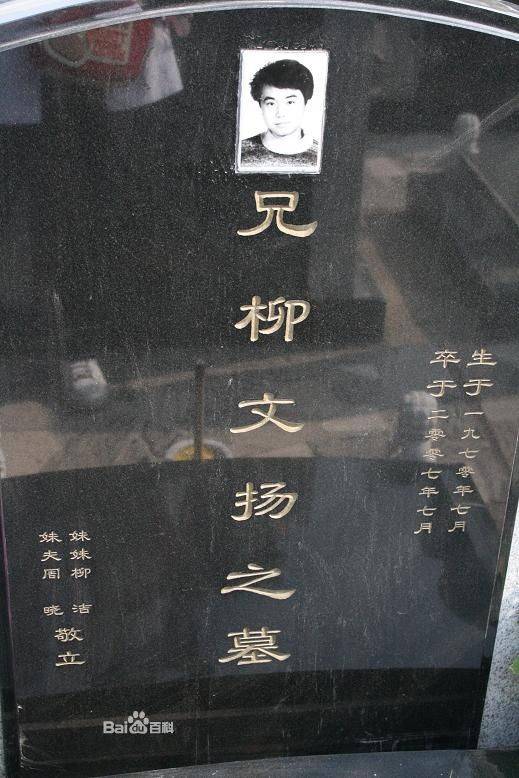 生于一九七零年七月
卒于二零零七年七月
兄柳文扬之墓
妹妹柳洁
妹夫周晓
敬立
Baidu百科